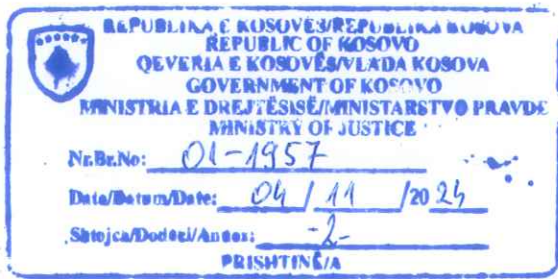 REPUBLIKA E KOSOVËS/REPUBLIKA KOSOVA
REPUBLIC OF KOSOVO
QEVERIA E KOSOVËS/VLADA KOSOVA
GOVERNMENT OF KOSOVO
MINISTRIA E DREJTËSISË/MINISTARSTVO PRAVDE
MINISTRY OF JUSTICE
Nr.Br.No: 01-1957
Data/Datum/Date: 04 / 11 /20 24
Shtojca/Dodaci/Annex: -2-
PRISHTINË/A